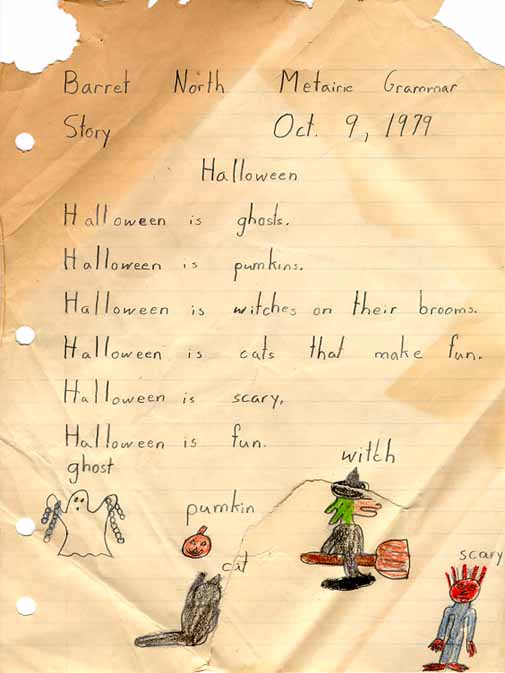 Barret North Metairie Grammar
Story Oct. 9, 1979
Halloween
Halloween is ghosts.
Halloween is pumkins.
Halloween is witches on their brooms.
Halloween is cats that make fun.
Halloween is scary.
Halloween is fun.
ghost
witch
pumkin
cat
scary